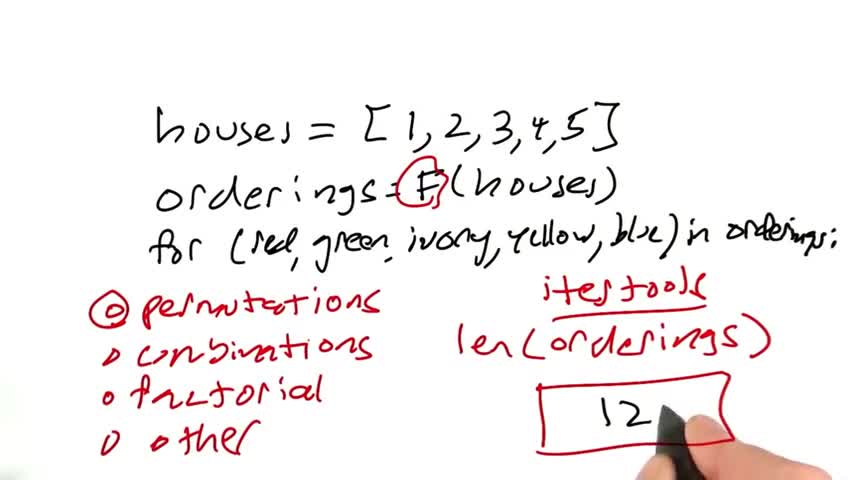 houses = [1, 2, 3, 4, 5]
orderings = F(houses)
for (red, green, ivory, yellow, blue) in orderings:
permutations
combinations
factorial
other
itertools
len(orderings)
12